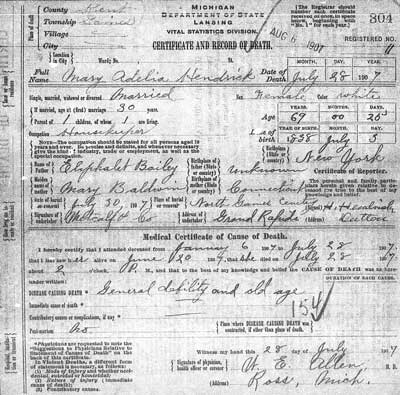 County Kent
Township Gaines
Village
City
MICHIGAN
DEPARTMENT OF STATE
LANSING
VITAL STATISTICS DIVISION.
AUG 1907
304
REGISTERED NO. 11
CERTIFICATE AND RECORD OF DEATH.
Full Name Mary Adelia Hendrick
Date of Death July 28 1907
MONTH, DAY, YEAR.
Single, married, widowed or divorced Married
Female Color White
If married, age at (first) marriage 30 years.
YEARS, MONTHS, DAYS.
Parent of 1 children, of whom 1 are living.
Age 69 00 25
Occupation Housekeeper
YEAR OF BIRTH, MONTH, DAY.
Date of birth 1838 July 3
NOTE—Occupation should be stated for all persons aged 10 years and over.
Name of Father Eliphalet Bailey
Birthplace New York
Birthplace of father (State or country) Unknown
Certificate of Reporter.
Maiden name of Mother Mary Baldwin
Birthplace of mother (State or country) Connecticut
The personal and family particulars herein given relative to deceased are true to the best of my knowledge and belief.
Date of burial July 30, 1907
North Gaines Center
Signature of undertaker Metcalf & Co
Address of undertaker Grand Rapids
Dutton
Medical Certificate of Cause of Death.
I hereby certify that I attended deceased from January 6 1907, to July 28 1907,
that I last saw her alive on June 20 1907, that she died July 28 1907
about 2 o'clock, P. M., and that to the best of my knowledge and belief the CAUSE OF DEATH was as under.
DURATION OF EACH CAUSE.
DISEASE CAUSING DEATH General debility and old age
154
Immediate cause of death
Contributory causes or complications, if any
Place where DISEASE CAUSING DEATH was contracted, if other than place of death
Post-mortem No
Witness my hand this 28 day of July 1907
*Physicians are requested to note the "Suggestions to Physicians Relative to Statement of Causes of Death" on the back of this certificate.
In Violent Deaths, a different form of statement is necessary, as follows:
(1) Mode of injury and whether accidental suicidal or homicidal;
(2) Nature of injury (immediate cause of death);
(3) Contributory causes.
Signature of physician, health officer or coroner W. E. Allen, M. D.
(Address) Ross, Mich.